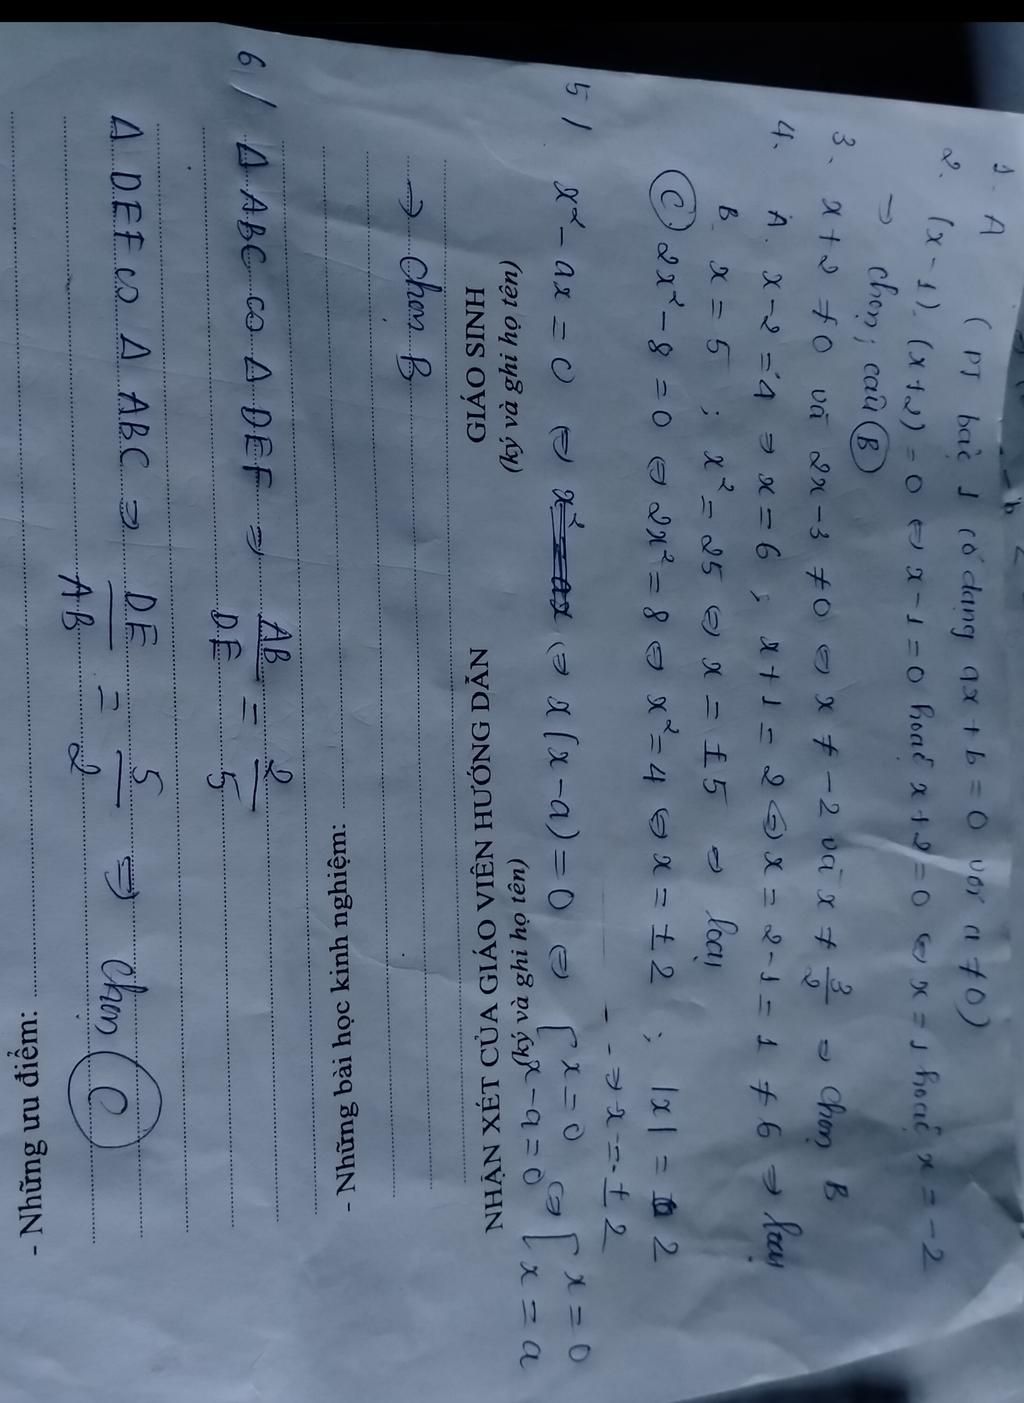 1. A ( PT bậc 1 có dạng ax + b = 0 với a ≠ 0)
2. (x - 1). (x + 2) = 0 ⇔ x - 1 = 0 hoặc x + 2 = 0 ⇔ x = 1 hoặc x = -2
⇒ chọn; câu B
3. x + 2 ≠ 0 và 2x - 3 ≠ 0 ⇔ x ≠ -2 và x ≠ 3/2 ⇒ chọn B
4. A. x - 2 = 4 ⇒ x = 6 ; x + 1 = 2 ⇔ x = 2 - 1 = 1 ≠ 6 ⇒ loại
B. x = 5 ; x² = 25 ⇔ x = ±5 ⇒ loại
C 2x² - 8 = 0 ⇔ 2x² = 8 ⇔ x² = 4 ⇔ x = ± 2 ; |x| = 2
- - ⇒ x = ± 2
5/ x² - ax = 0 ⇔ ⇔ x(x - a) = 0 ⇔ [ x = 0 ⇔ [ x = 0
x - a = 0 x = a
GIÁO SINH NHẬN XÉT CỦA GIÁO VIÊN HƯỚNG DẪN
(ký và ghi họ tên) (ký và ghi họ tên)
→ Chọn B
- Những bài học kinh nghiệm:
6/ Δ ABC ∽ Δ DEF ⇒ AB/DE = 2/5
Δ DEF ∽ Δ ABC ⇒ DE/AB = 5/2 ⇒ chọn C
- Những ưu điểm: